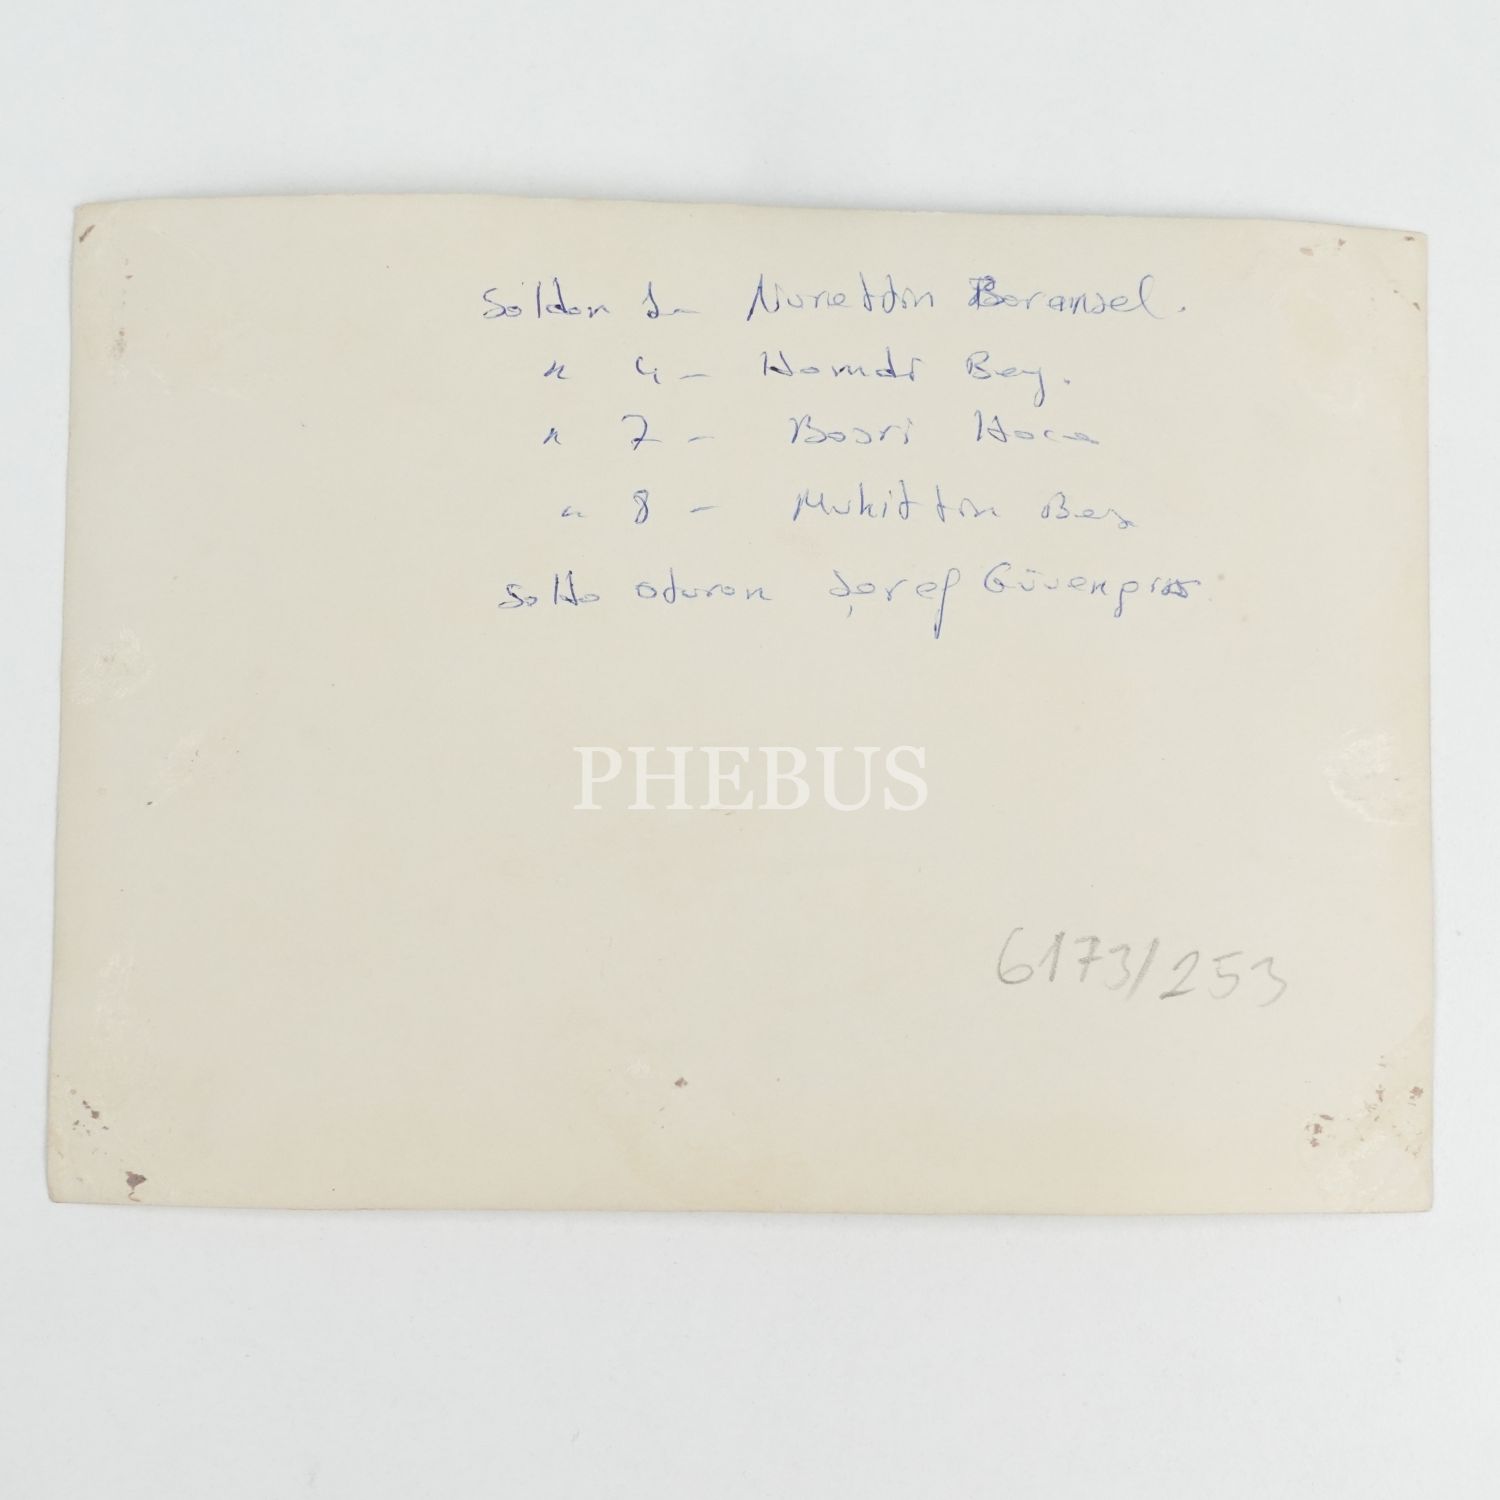 Soldan 1– Nurettin Baransel.
" 4 – Hamdi Bey.
" 7 – Basri Hoca
" 8 – Muhittin Bey
Solda oturan Şeref Güvenpınar
PHEBUS
6173/253